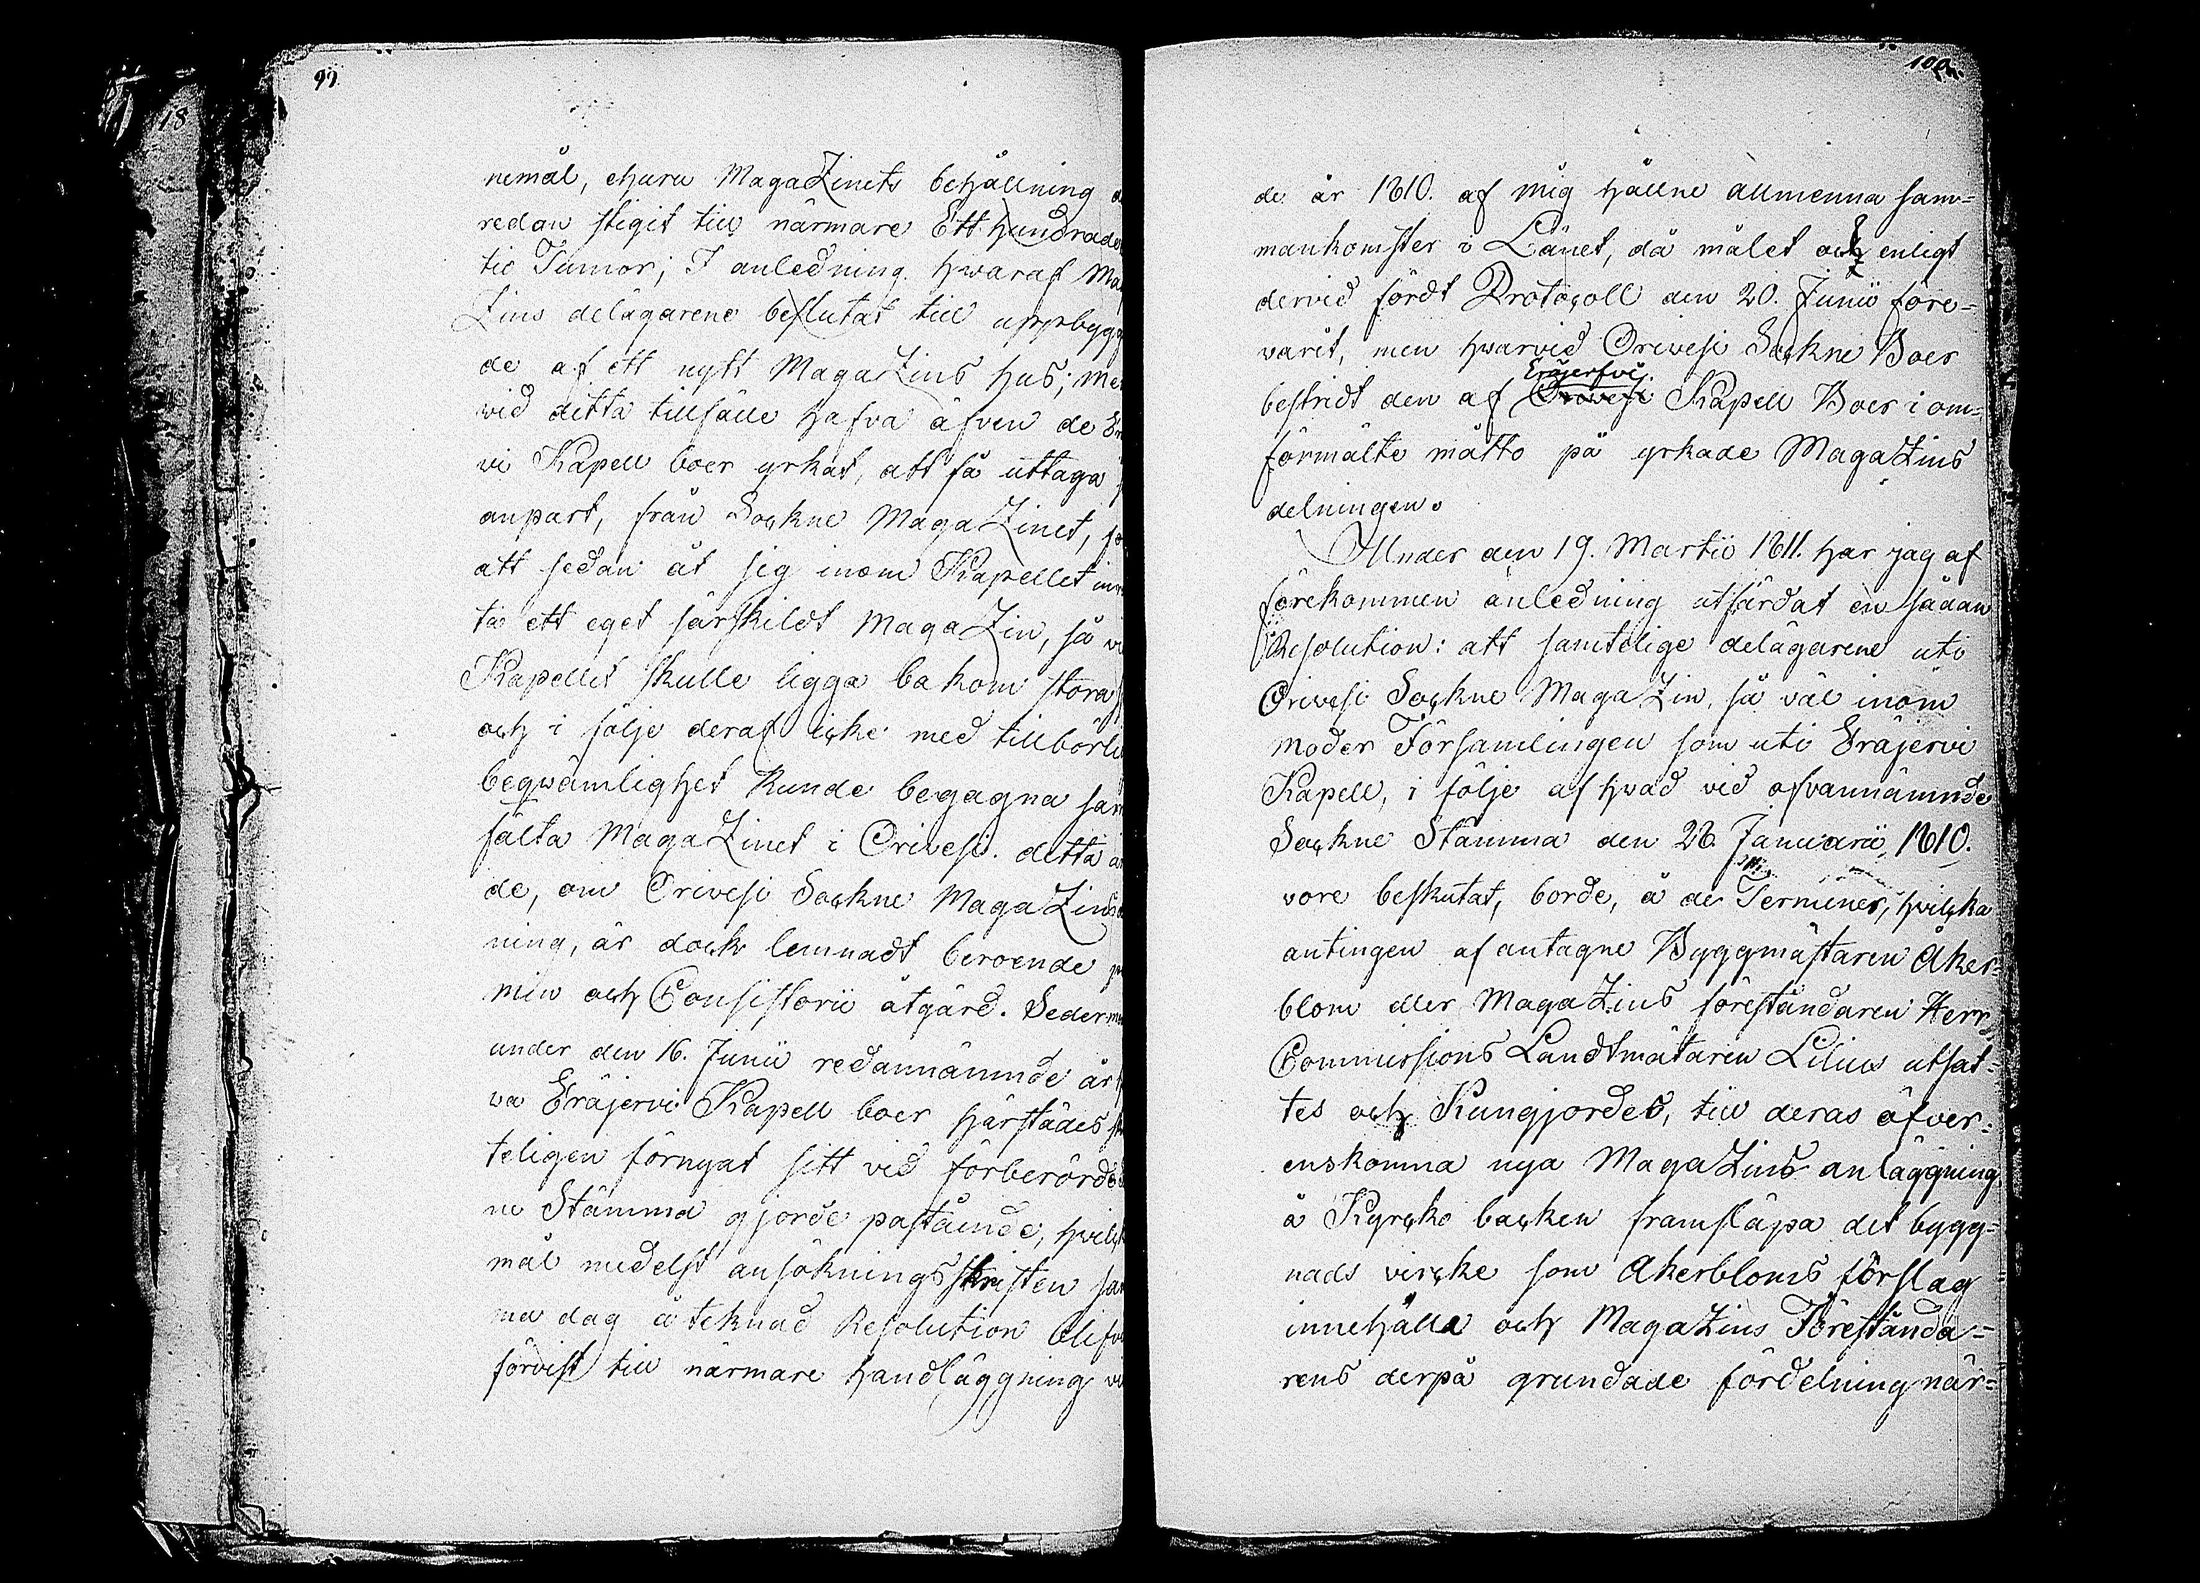 99
18
nemål, ehuru MagaZinets behållning
redan stigit till närmare Ett hundrade
tio Tunnor; I anledning hwaraf Ma
Zins delägarene beslutat till uppbygg
de af ett nytt MagaZins hus; Men
vid detta tillfälle hafva äfven de Er
vi Kapell boer yrkat, att få uttaga
anpart, från Sockne MagaZinet, fö
att sedan åt sig inom Kapellet inr
ta ett eget särskildt MagaZin, så vi
Kapellet skulle ligga bakom stora
och i följe deraf icke med tillbörli
beqwämlighet kunde begagna sam
fälta MagaZinet i Orivesi. detta
de, om Orivesi Sockne MagaZins
ning, är dock lemnadt beroende på
min och Consistorii åtgärd. Seder me
under den 16. Junii redannämnde år
va Eräjervi Kapell boer härstädes
teligen förnyat sitt vid förberörde
ne Stämma gjorde påstående, hvilk
mål medelst ansökningsskriften sam
ma dag å teknad Resolution blifv
förvist till närmare handläggning vi
100.
de år 1810. af mig hållne allmenna sam-
mankomster i Länet, då målet och enligt
dervid fördt Protocoll den 20. Junii före-
varit, men hwarvid Orivesi Sockne Boer
Eräjerfvi
bestridt den af Orovesi Kapell Boer i om-
förmälte måtto på yrkade MagaZins
delningen.
Under den 19. Martii 1811. har jag af
förekommen anledning utfärdat en sådan
Resolution: att samtelige delägarene uti
Orivesi Sockne MagaZin, så väl inom
moder Församlingen som uti Eräjervi
Kapell, i följe af hvad vid ofvannämnde
Sockne Stämma den 28. Januarii, 1810.
vore beslutat, borde, å de Terminer, hvilcka
antingen af antagne Byggmästaren Åker-
blom eller MagaZins föreståndaren Herr
Commissions Landtmätaren Lilius utsat-
tes och Kungjordes, till deras öfver-
enskomna nya MagaZins anläggning
å Kyrcko backen framsläpa det bygg-
nads vircke som Åkerbloms förslag
innehålla och MagaZins Förestånda-
rens derpå grundade fördelning när-